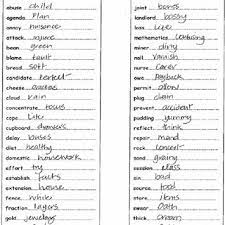 abuse child
agenda Plan
annoy nuisance
attack injure
bean green
blame fault
bread soft
candidate perfect
cheese crackers
cloud rain
concentrate focus
cope Like
cupboard
delay
diet healthy
domestic housework
effort try
establish facts
extension house
fence white
fraction layers
gold jewellery
joint bones
landlord bossy
loss Lives
mathematics confusing
minor dirty
nail Vanish
nurse carer
owe payback
permit allow
plug chain
prevent accident
pudding yummy
reflect think
repair mand
rock concert
sand grainy
session class
sin bad
source food
store items
swear Oath
thick cream